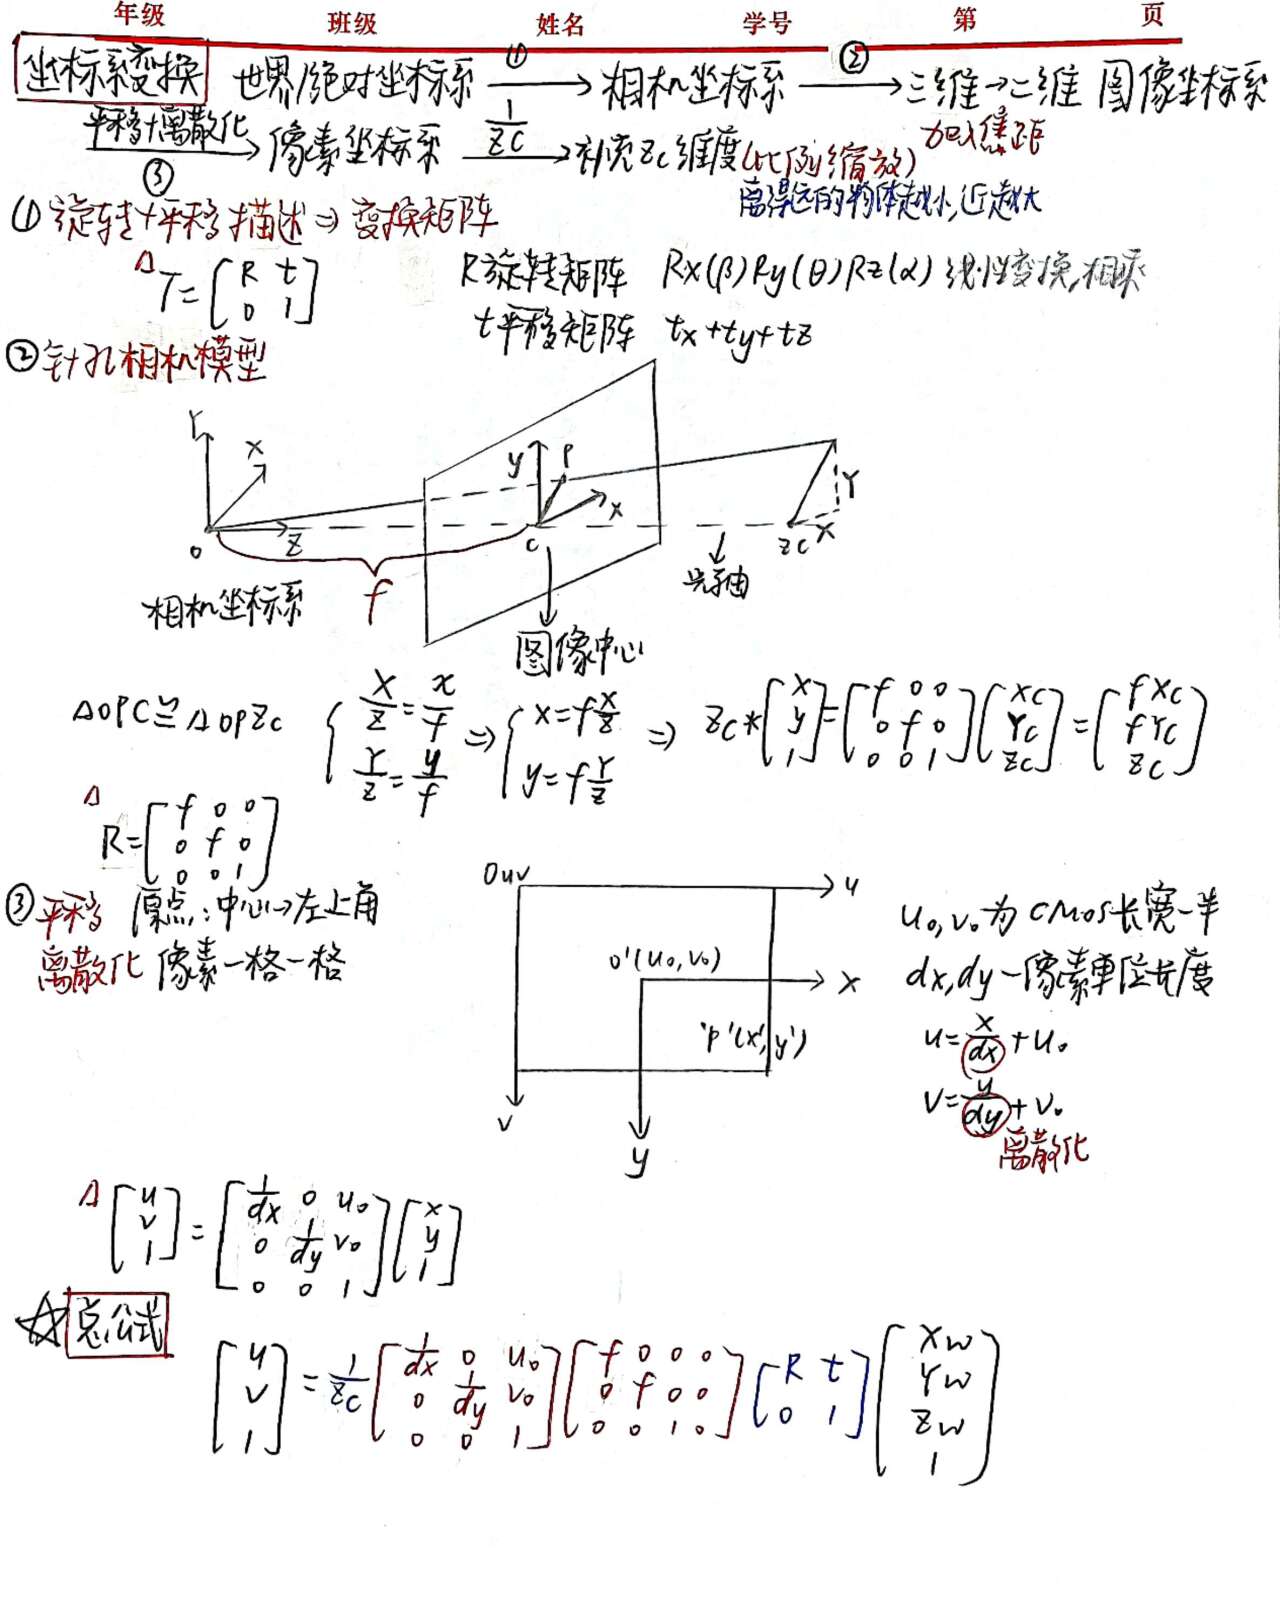 年级 班级 姓名 学号 第 页
坐标系变换 世界/绝对坐标系 ①→ 相机坐标系 ②→ 三维→二维 图像坐标系
加入焦距
平移+离散化 ③→ 像素坐标系 1/Zc → 补充Zc维度(比例缩放)
离得远的物体越小,近越大
① 旋转+平移描述 ⇒ 变换矩阵
△ T= [R t; 0 1] R旋转矩阵 Rx(β)Ry(θ)Rz(α) 线性变换,相乘
t平移矩阵 tx+ty+tz
② 针孔相机模型
Y X Z O
相机坐标系
f
y P x C
图像中心
光轴
Zc X Y
△OPC≌△OPZc { X/Z = x/f, Y/Z = y/f ⇒ { x=f X/Z, y=f Y/Z ⇒ Zc*[x; y; 1]=[f 0 0; 0 f 0; 0 0 1][Xc; Yc; Zc]=[fXc; fYc; Zc]
△ R=[f 0 0; 0 f 0; 0 0 1]
③ 平移 原点:中心→左上角
离散化 像素一格一格
Ouv u
o'(u₀,v₀) x
'p'(x',y')
v y
u₀,v₀为CMOS长宽一半
dx,dy一像素单位长度
u= x/dx +u₀
v= y/dy +v₀
离散化
△ [u; v; 1] = [1/dx 0 u₀; 0 1/dy v₀; 0 0 1][x; y; 1]
☆ 总公式
[u; v; 1] = 1/Zc [1/dx 0 u₀; 0 1/dy v₀; 0 0 1][f 0 0 0; 0 f 0 0; 0 0 1 0][R t; 0 1][Xw; Yw; Zw; 1]